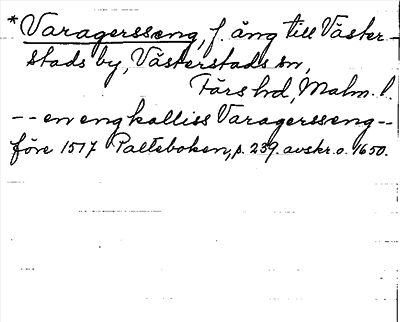 *Varagersseng, f. äng till Väster-
stads by, Västerstads sn,
Färs hd, Malm. l.
-- en eng kalliss Varagersseng --
före 1517 Palteboken, s. 239. avskr. o. 1650.